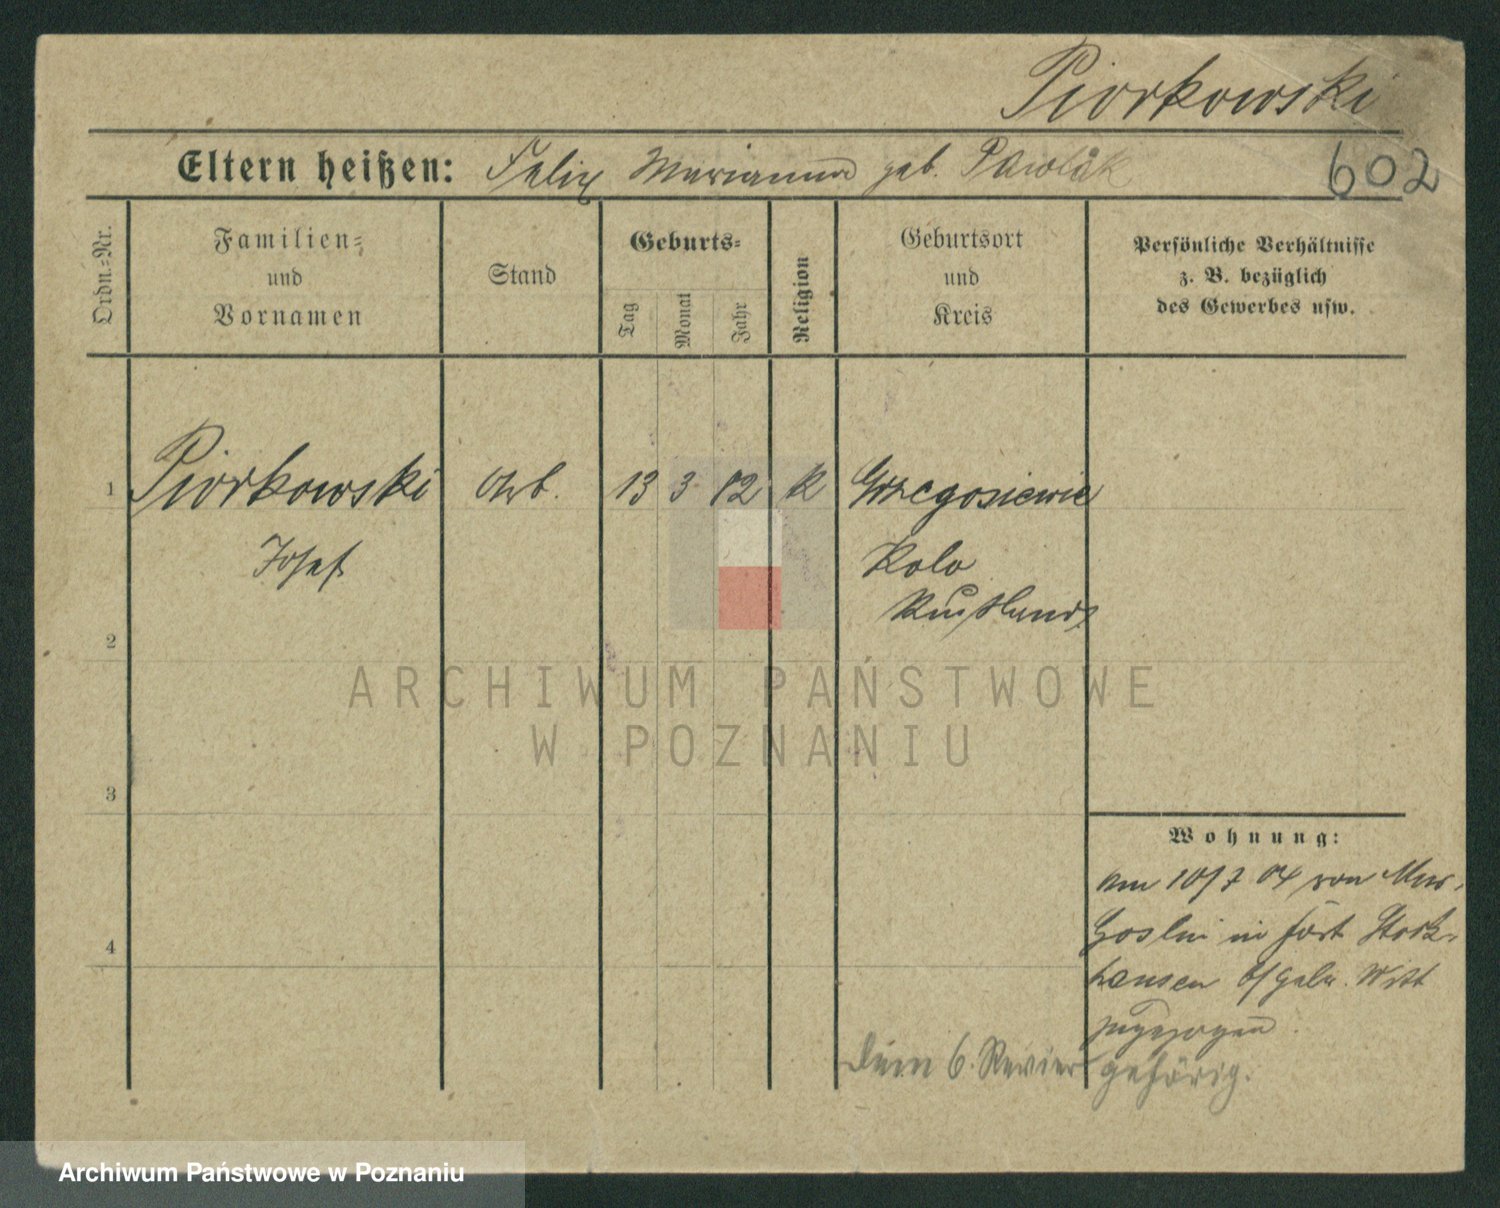 Piorkowski
Eltern heißen: Felix Marianna geb. Pawlak
602
Ordn.-Nr.
Familien-
und
Vornamen
Stand
Geburts-
Tag
Monat
Jahr
Religion
Geburtsort
und
Kreis
Persönliche Verhältnisse
z. B. bezüglich
des Gewerbes usw.
1 Piorkowski Arb. 13 3 82 K Grzegosiewic
Josef Kolo
Russland
2
3
4
Wohnung:
Am 10/3 04 von Mur.
Goslin in Fort Stock-
hausen b/ Witt
zugezogen.
dem 6. Revier gehörig.
ARCHIWUM PAŃSTWOWE
W POZNANIU
Archiwum Państwowe w Poznaniu